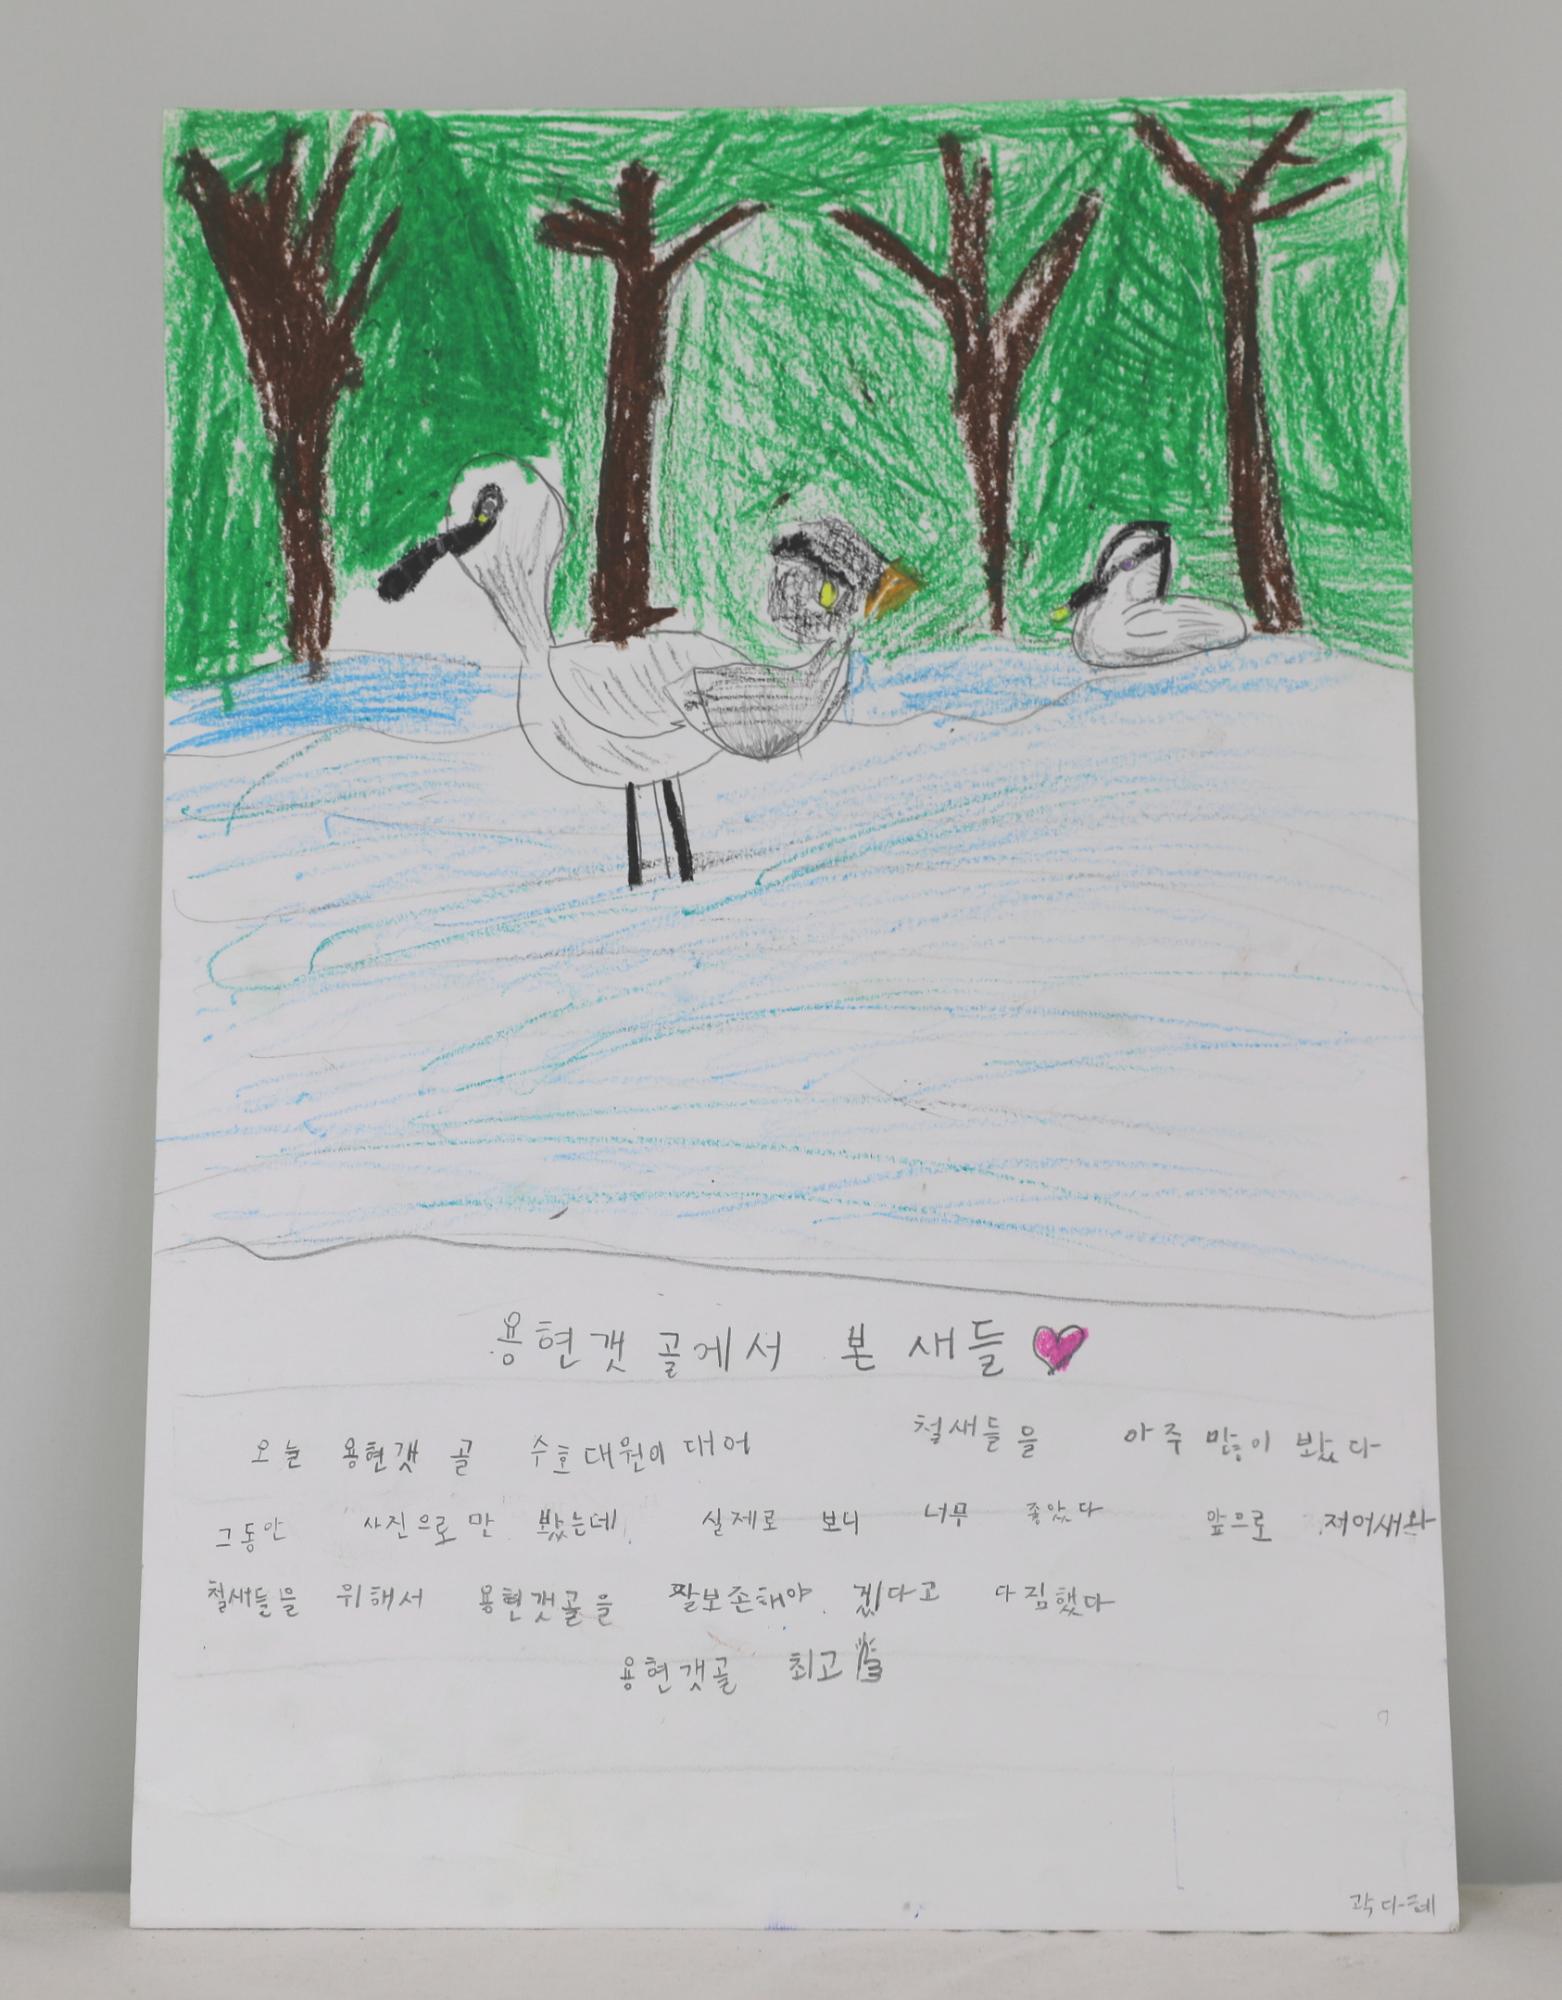 용현갯골에서 본 새들
오늘 용현갯골 수호대원이 대어 철새들을 아주 많이 봤다
그동안 사진으로만 봤는데 실제로 보니 너무 좋았다 앞으로 저어새와
철새들을 위해서 용현갯골을 잘보존해야 겠다고 다짐했다
용현갯골 최고
곽다혜